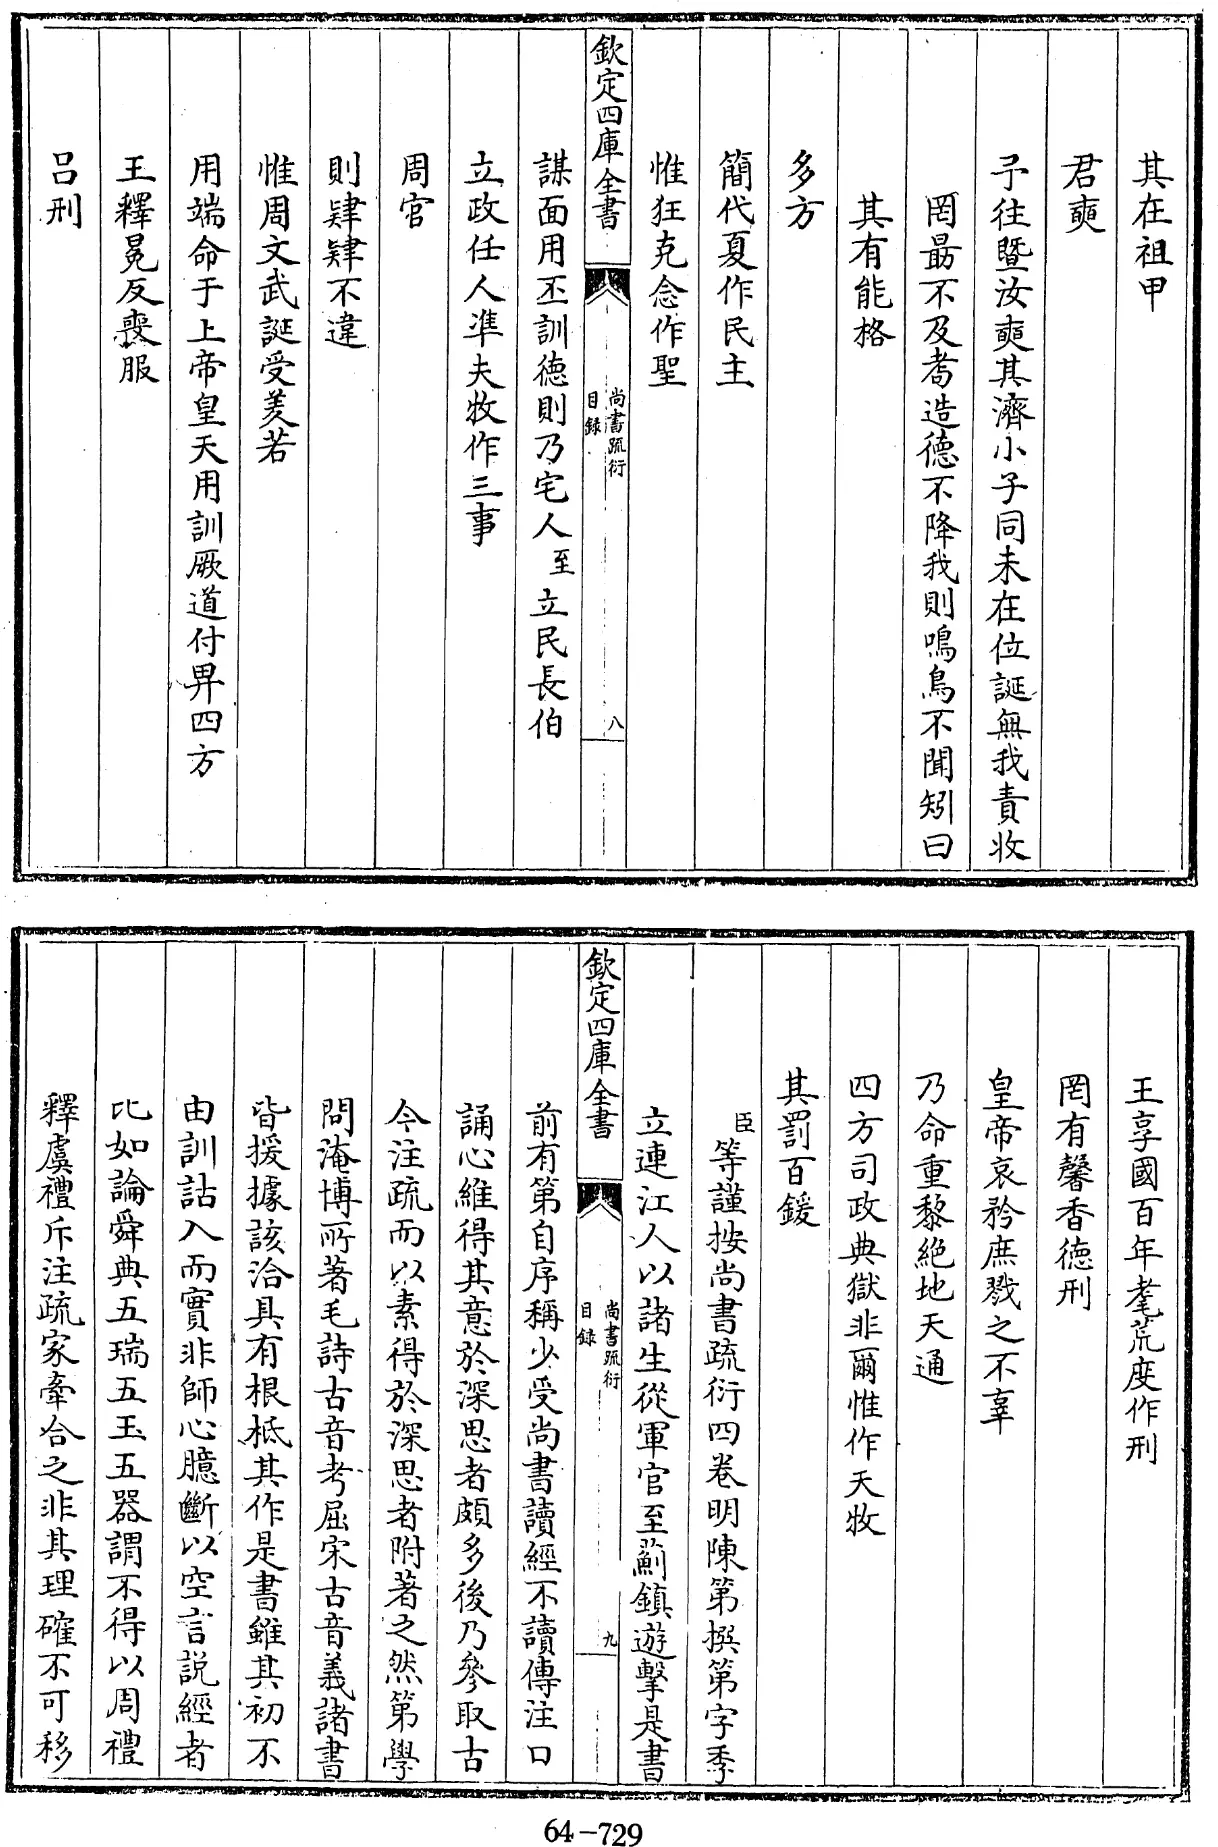 其在祖甲
君奭
予往暨汝奭其濟小子同未在位誕無我責收
罔朂不及耇造德不降我則鳴鳥不聞矧曰
其有能格
多方
簡代夏作民主
惟狂克念作聖
欽定四庫全書
尚書疏衍
目錄
八
謀面用丕訓德則乃宅人至立民長伯
立政任人準夫牧作三事
周官
則肄肄不違
惟周文武誕受羑若
用端命于上帝皇天用訓厥道付畀四方
王釋冕反喪服
呂刑
王享國百年耄荒度作刑
罔有馨香德刑
皇帝哀矜庶戮之不辜
乃命重黎絶地天通
四方司政典獄非爾惟作天牧
其罰百鍰
臣等謹按尚書疏衍四卷明陳第撰第字季
立連江人以諸生從軍官至薊鎮遊擊是書
欽定四庫全書
尚書疏衍
目錄
九
前有第自序稱少受尚書讀經不讀傳注口
誦心維得其意於深思者頗多後乃參取古
今注疏而以素得於深思者附著之然第學
問淹博所著毛詩古音考屈宋古音義諸書
皆援據該洽具有根柢其作是書雖其初不
由訓詁入而實非師心臆斷以空言説經者
比如論舜典五瑞五玉五器謂不得以周禮
釋虞禮斥注疏家牽合之非其理確不可移
64-729